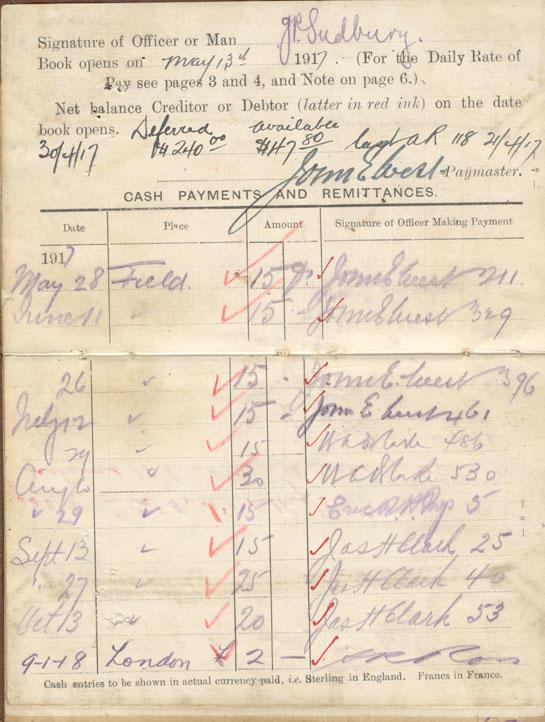 Signature of Officer or Man J.P. Sudbury.
Book opens on May 13th 1917 (For the Daily Rate of
Pay see pages 3 and 4, and Note on page 6.)
Net balance Creditor or Debtor (latter in red ink) on the date
book opens. Deferred available
30/4/17 $240.00 $47.80 last AR 118 21/4/17
John E West Paymaster.
CASH PAYMENTS AND REMITTANCES.
Date Place Amount Signature of Officer Making Payment
1917
May 28 Field. 15 John E West 211
June 11 " 15 John E West 329
26 " 15 John E West 396
July 12 " 15 John E West 461
29 " 15 486
Aug 10 " 30 530
" 29 " 15 5
Sept 13 " 15 Jas H Clark 25
" 27 " 25 Jas H Clark 40
Oct 13 " 20 Jas H Clark 53
9-1-18 London £ 2 —
Cash entries to be shown in actual currency paid, i.e. Sterling in England. Francs in France.